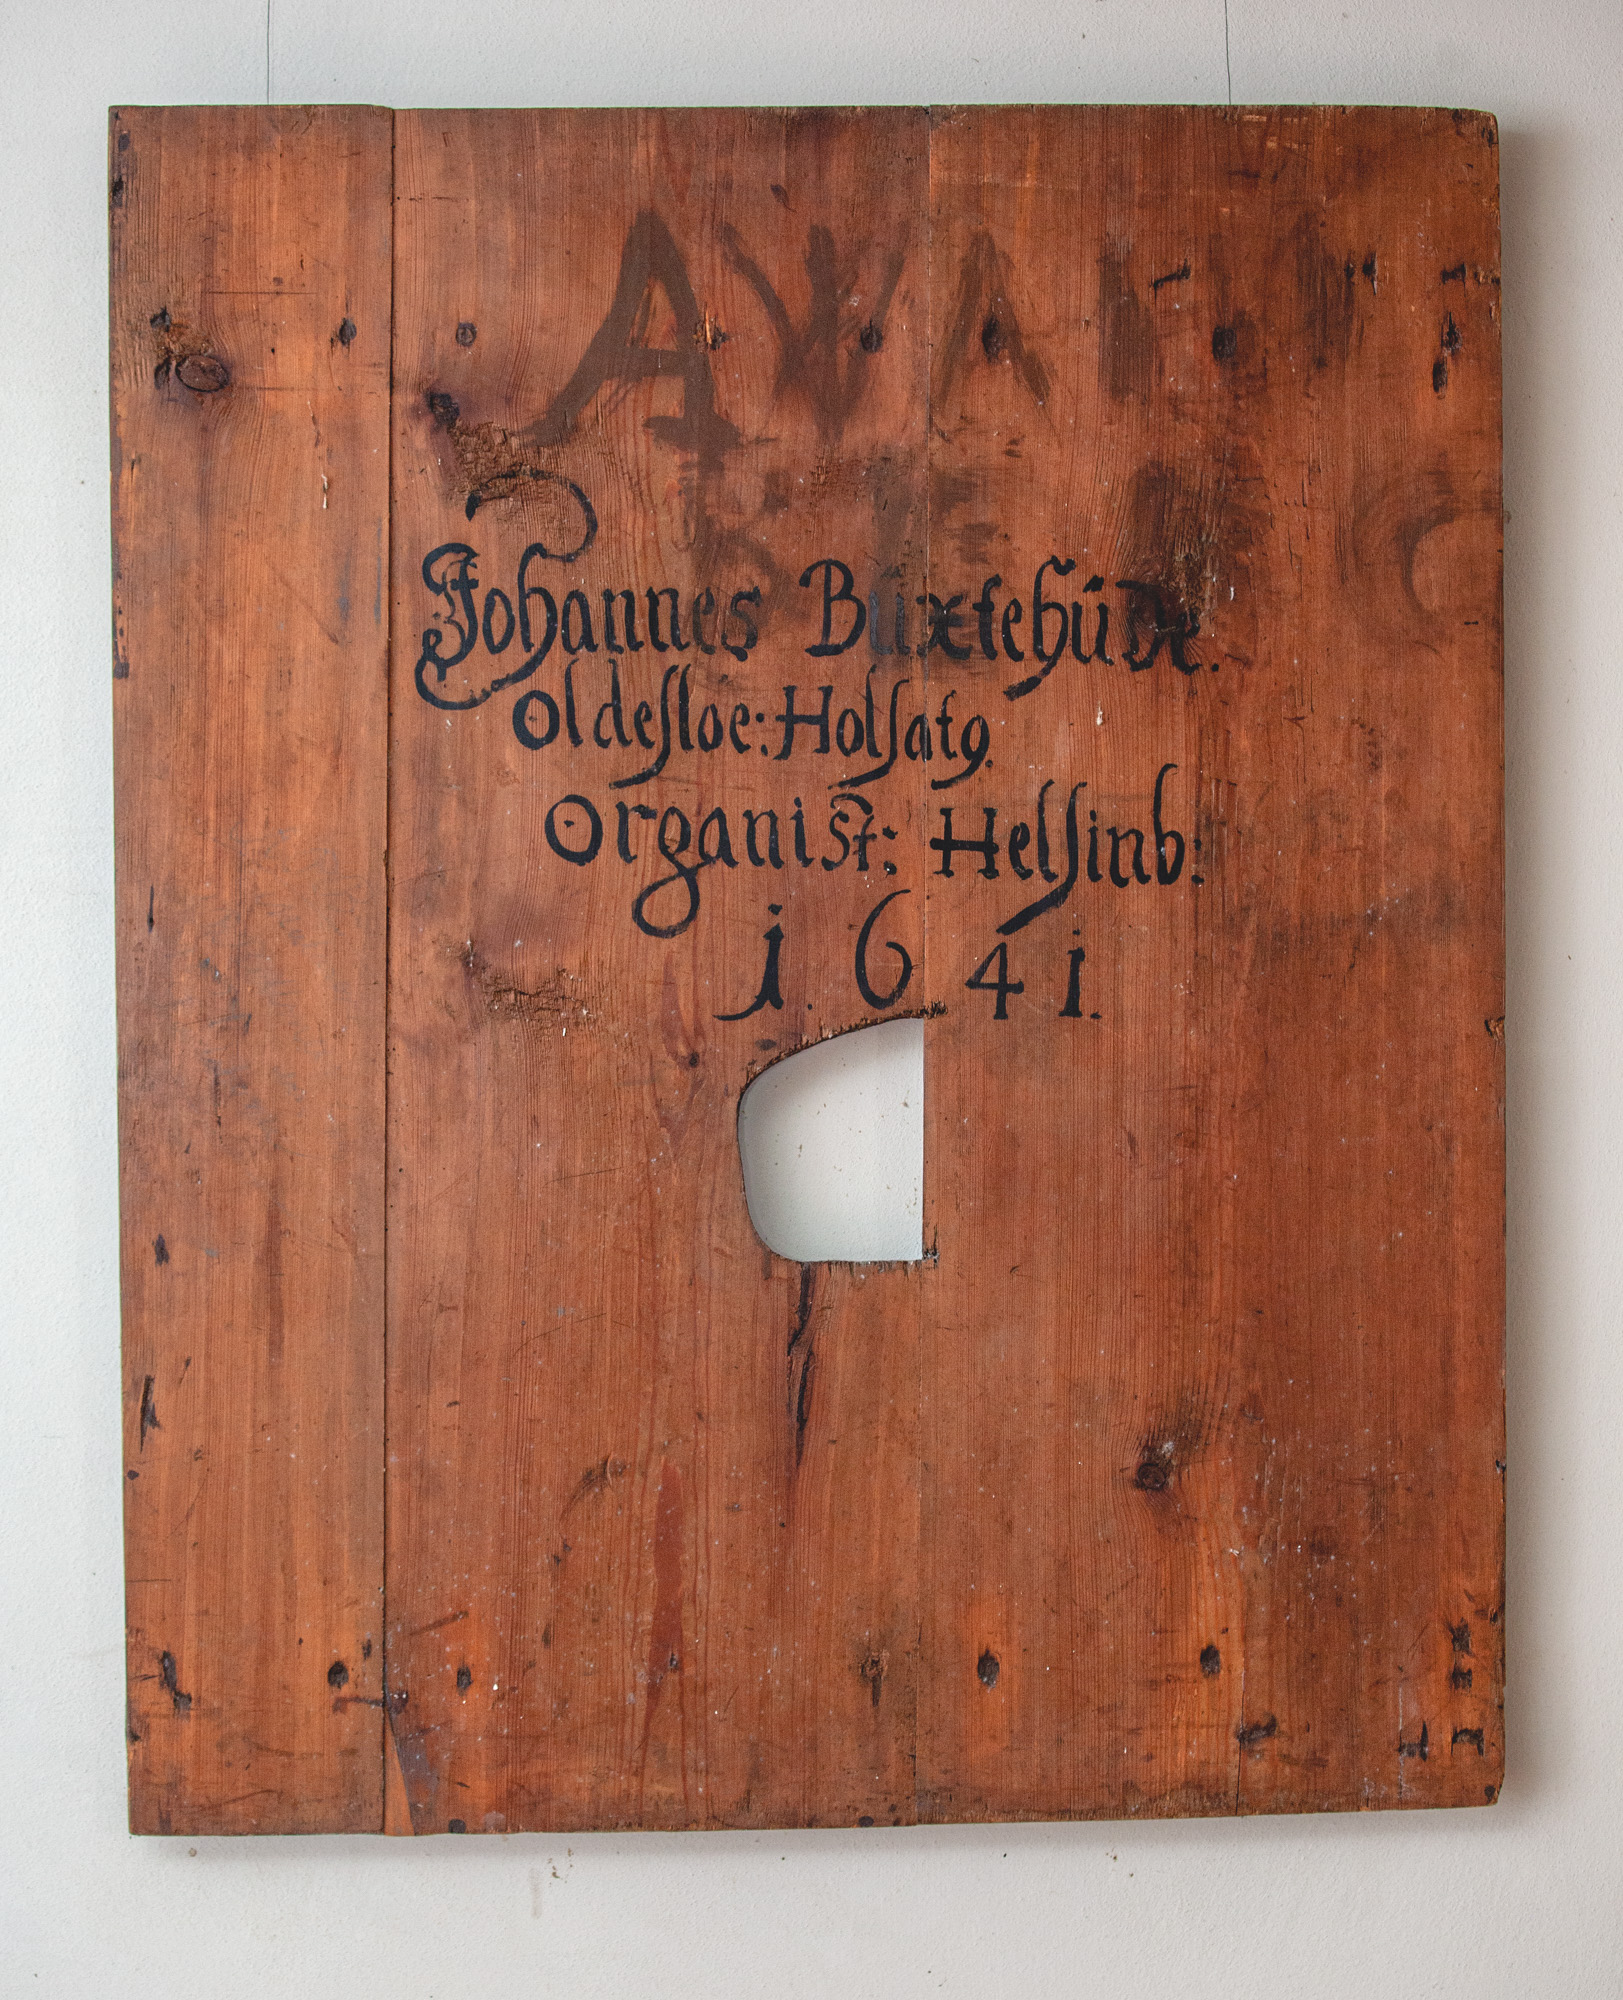 Johannes Büxtehüde.
Oldesloe: Holsatꝯ.
Organist: Helsinb:
1. 6 4 1.